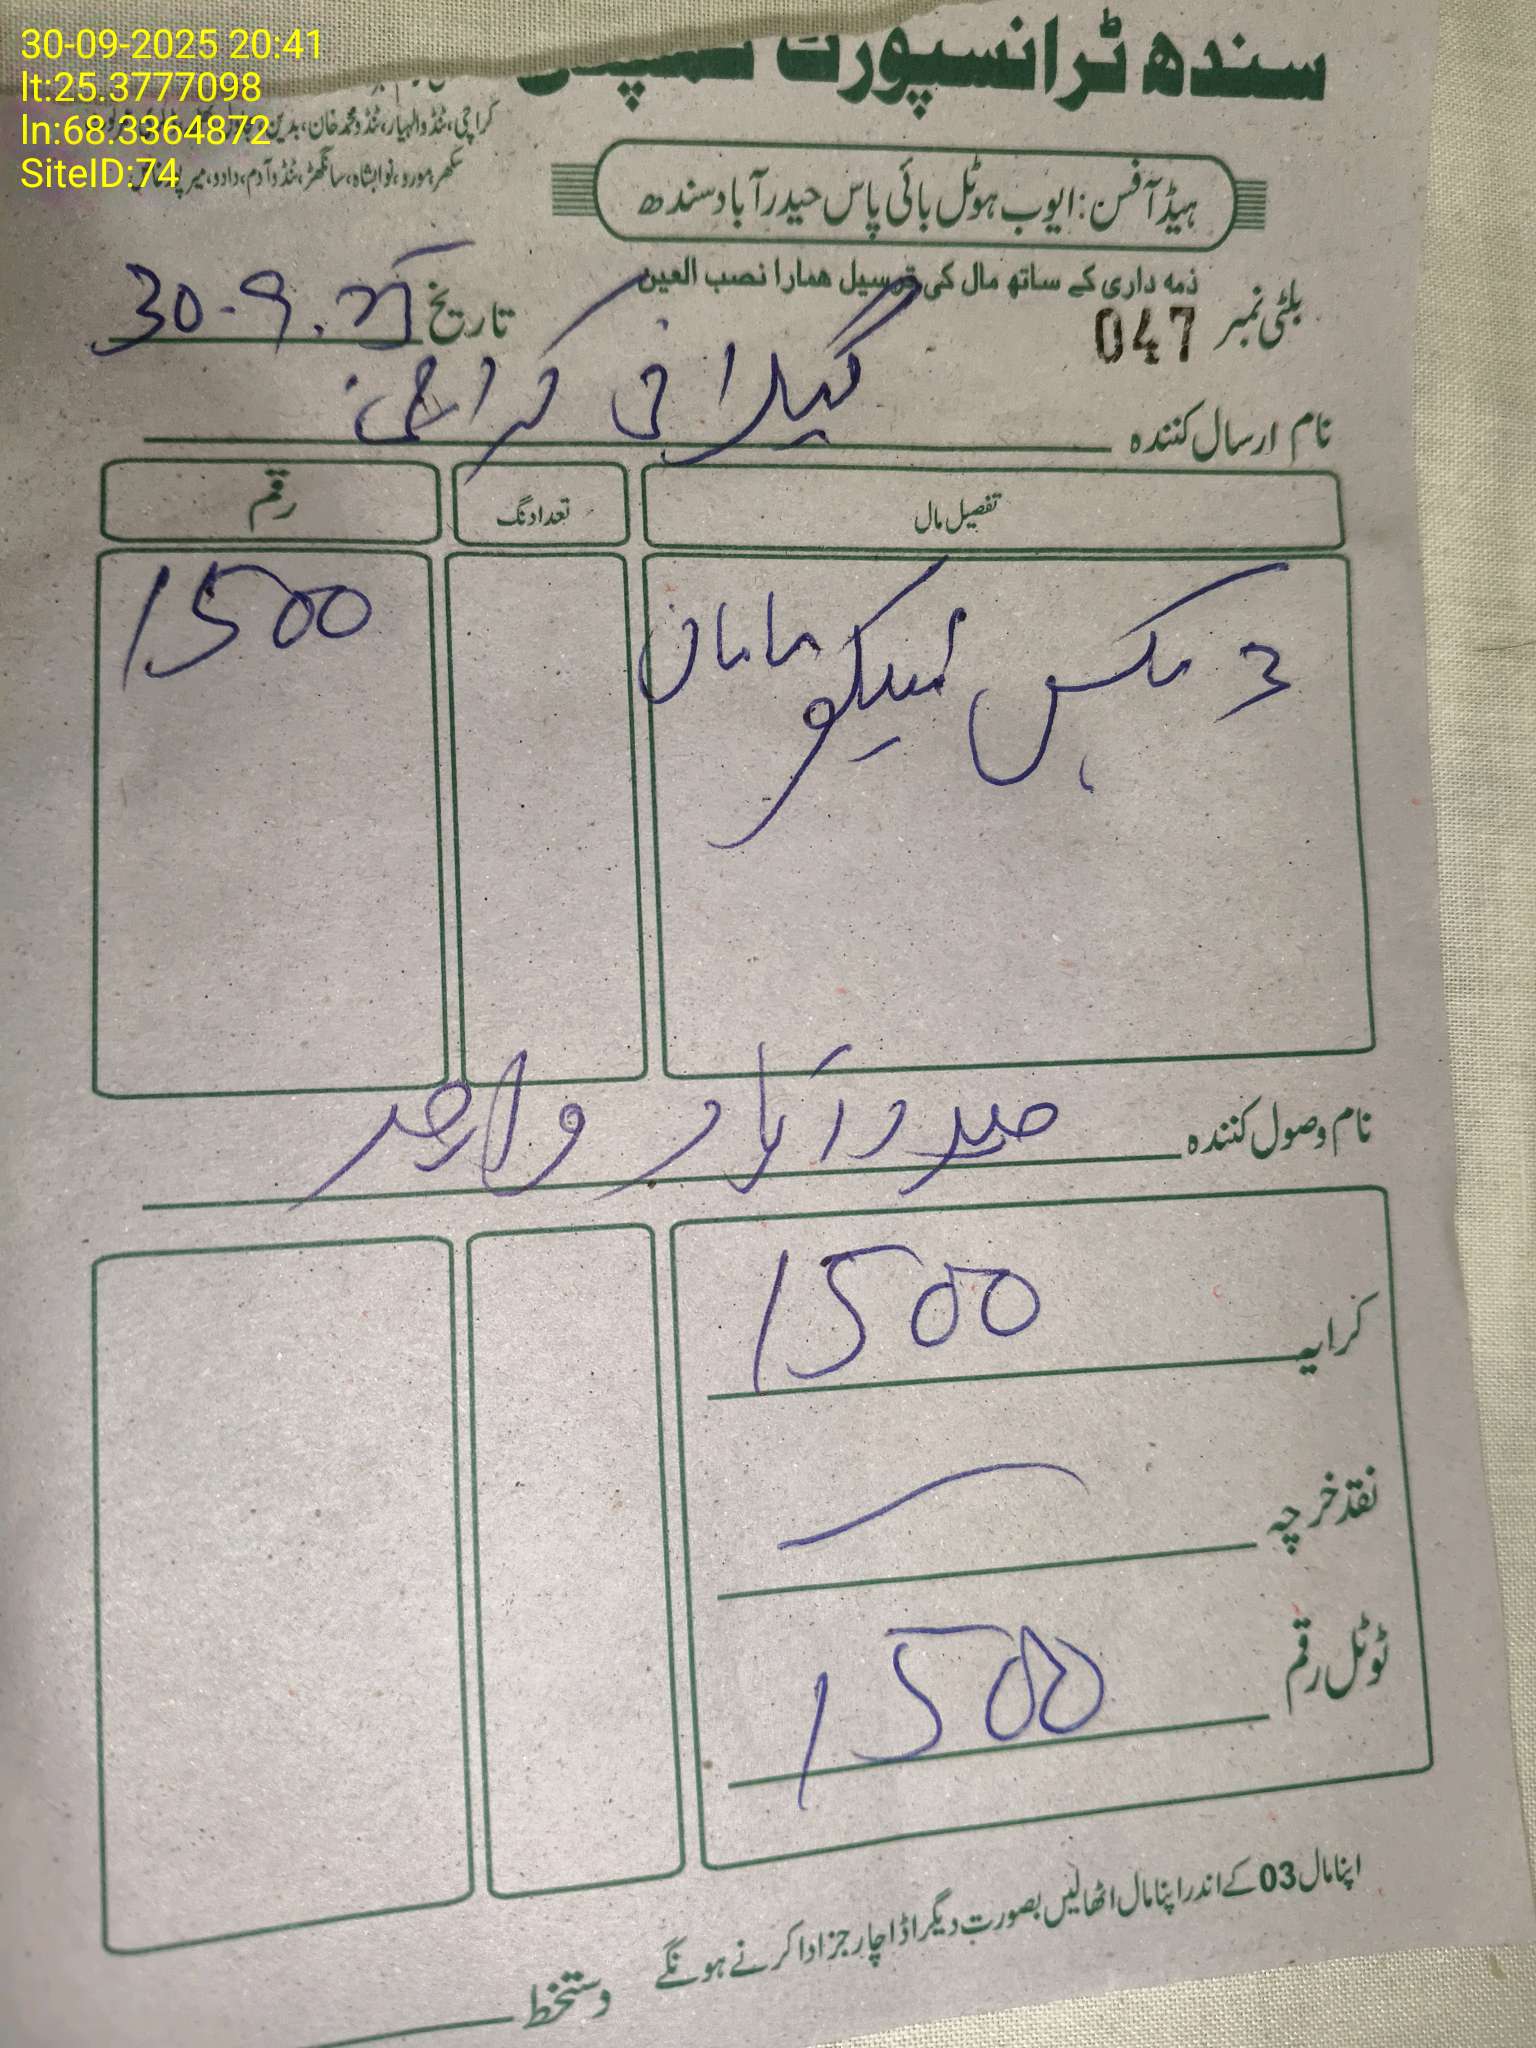 30-09-2025 20:41
lt:25.3777098
ln:68.3364872
SiteID:74
سندھ ٹرانسپورٹ کمپنی
کراچی، ٹنڈوالہیار، ٹنڈو محمد خان، بدین
سکھر، مورو، نوابشاہ، سانگھڑ، ٹنڈوآدم، دادو، میرپورخاص
ہیڈ آفس: ایوب ہوٹل بائی پاس حیدرآباد سندھ
ذمہ داری کے ساتھ مال کی ترسیل ہمارا نصب العین
بلٹی نمبر 047
تاریخ 30.9.25
نام ارسال کنندہ گیلانی کراچی
تفصیل مال تعداد نگ رقم
3 بکس ٹیلیکو سامان 1500
نام وصول کنندہ حیدرآباد
کرایہ 1500
نقد خرچہ
ٹوٹل رقم 1500
اپنا مال 03 کے اندر اپنا مال اٹھالیں بصورت دیگر اڈا چارجز ادا کرنے ہونگے
دستخط